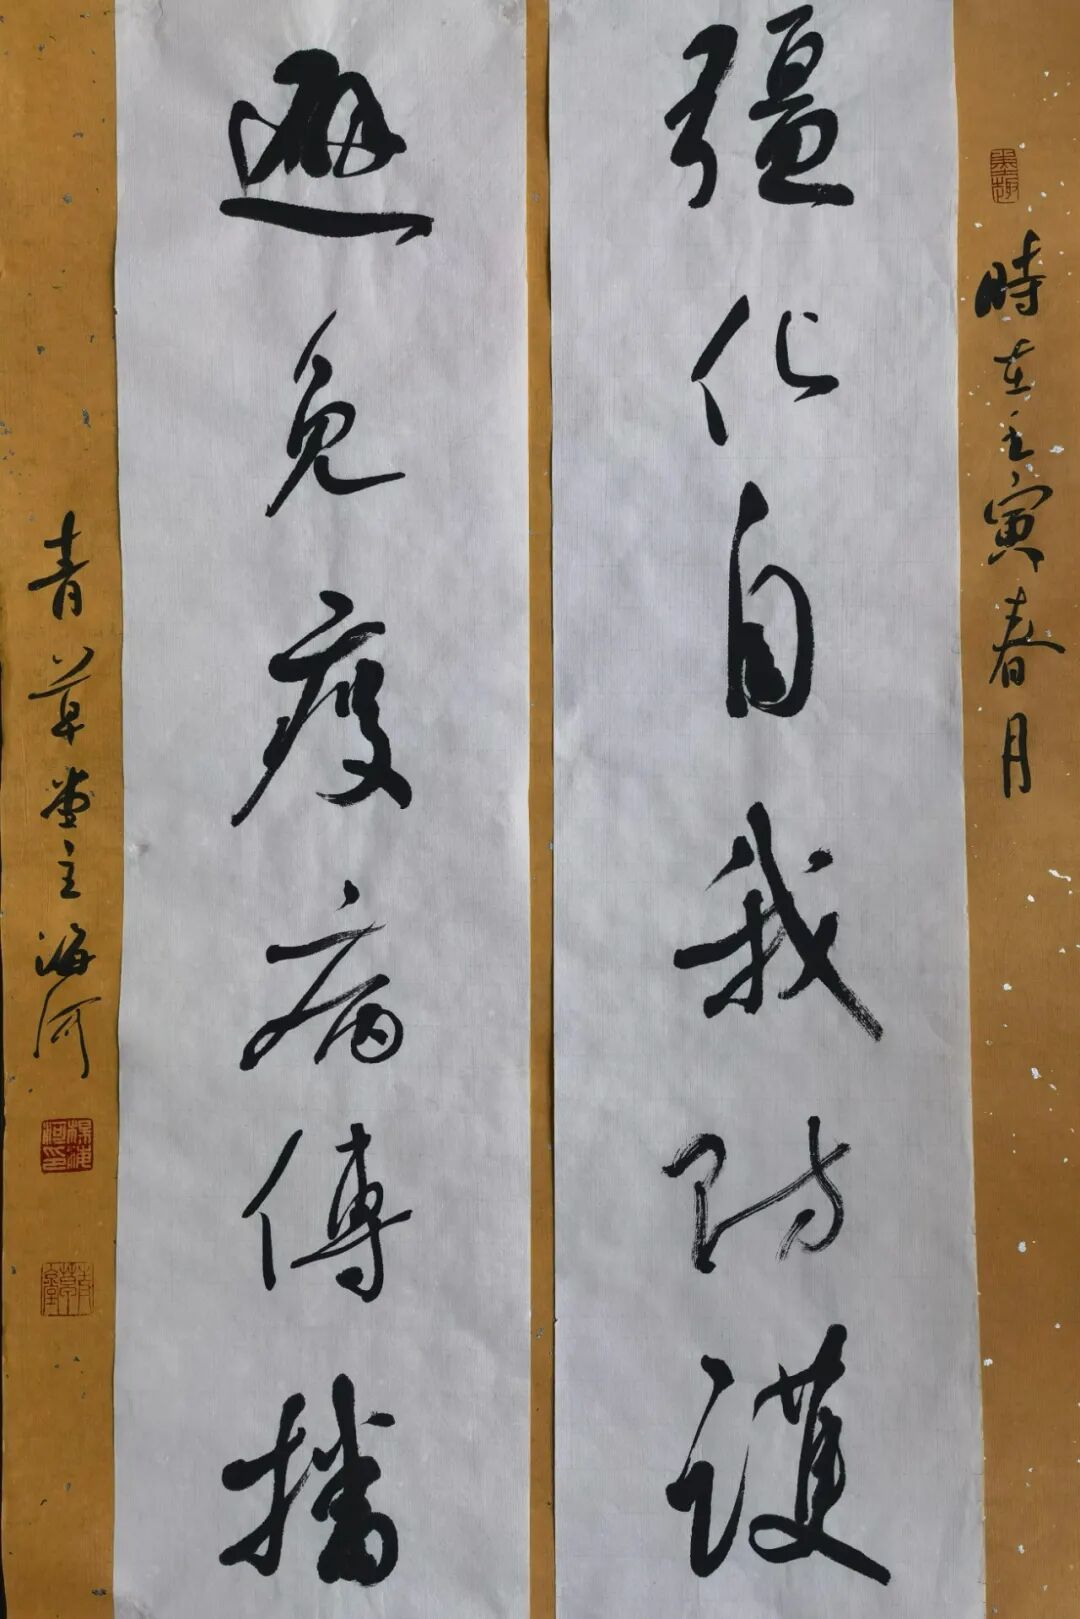 時在壬寅春月
彊化自我防護
避免疫病傳播
青草堂主海河